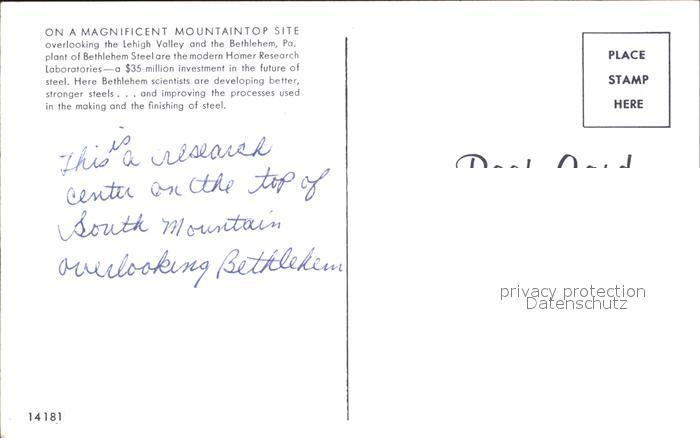 ON A MAGNIFICENT MOUNTAINTOP SITE
overlooking the Lehigh Valley and the Bethlehem, Pa.
plant of Bethlehem Steel are the modern Homer Research
Laboratories—a $35 million investment in the future of
steel. Here Bethlehem scientists are developing better,
stronger steels . . . and improving the processes used
in the making and the finishing of steel.
PLACE
STAMP
HERE
Post Card
This is a research
center on the top of
South Mountain
overlooking Bethlehem
privacy protection
Datenschutz
14181